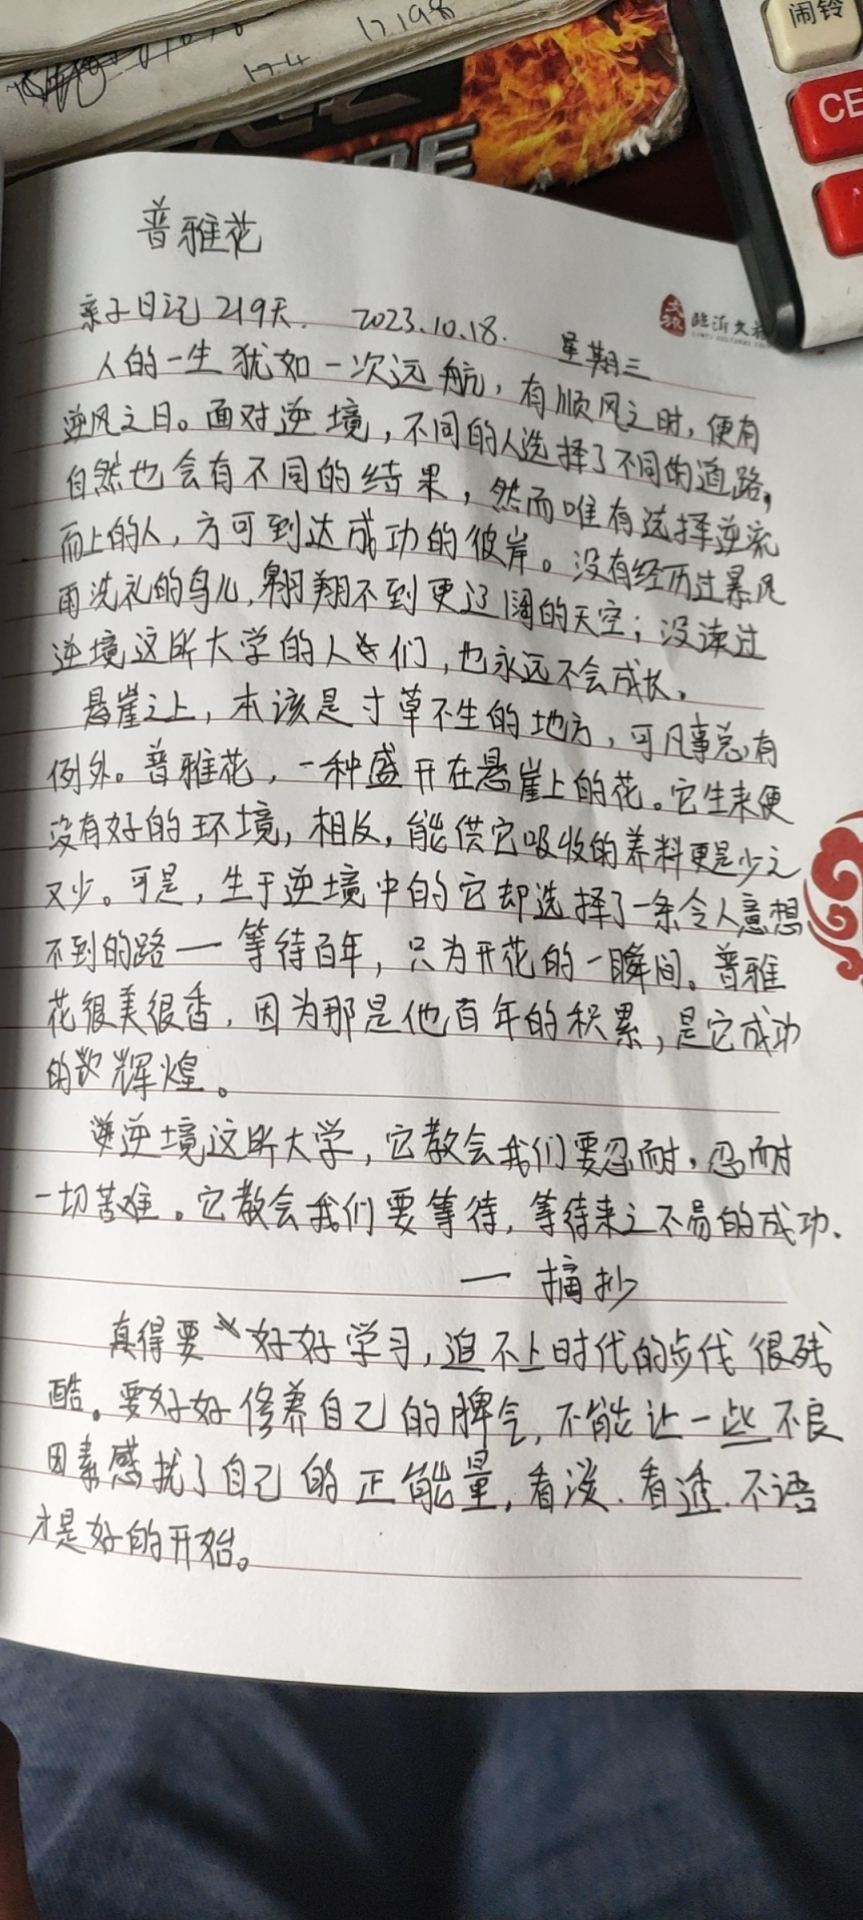 17198
174
闹铃
CE
普雅花
临沂文
亲子日记 219天. 2023.10.18. 星期三
人的一生犹如一次远航，有顺风之时，便有
逆风之日。面对逆境，不同的人选择了不同的道路，
自然也会有不同的结果，然而唯有选择逆流
而上的人，方可到达成功的彼岸。没有经历过暴风
雨洗礼的鸟儿，翱翔不到更辽阔的天空；没读过
逆境这所大学的人们，也永远不会成长。
悬崖之上，本该是寸草不生的地方，可凡事总有
例外。普雅花，一种盛开在悬崖上的花。它生来便
没有好的环境，相反，能供它吸收的养料更是少之
又少。可是，生于逆境中的它却选择了一条令人意想
不到的路一等待百年，只为开花的一瞬间。普雅
花很美很香，因为那是他百年的积累，是它成功
的辉煌。
逆境这所大学，它教会我们要忍耐，忍耐
一切苦难。它教会我们要等待，等待来之不易的成功、
一 摘抄
真得要好好学习，追不上时代的步代很残
酷。要好好修养自己的脾气，不能让一些不良
因素感扰了自己的正能量，看淡、看透、不语
才是好的开始。